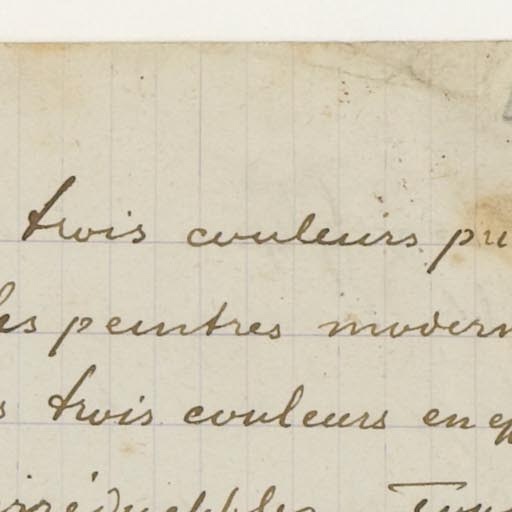 trois couleurs pu
les peintres modern
s trois couleurs en
irréductibles